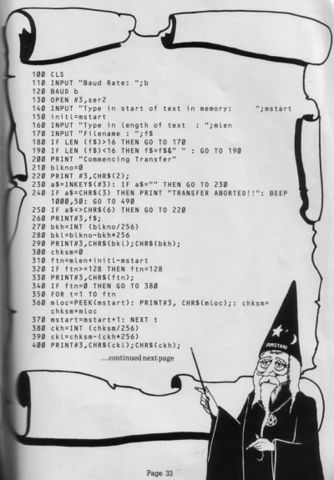 100 CLS
110 INPUT "Baud Rate: ";b
120 BAUD b
130 OPEN #3,ser2
140 INPUT "Type in start of text in memory: ";mstart
150 initl=mstart
160 INPUT "Type in length of text : ";mlen
170 INPUT "Filename : ";f$
180 IF LEN (f$)>16 THEN GO TO 170
190 IF LEN (f$)<16 THEN f$=f$&" " : GO TO 190
200 PRINT "Commencing Transfer"
210 blkno=0
220 PRINT #3,CHR$(2);
230 a$=INKEY$(#3): IF a$="" THEN GO TO 230
240 IF a$=CHR$(3) THEN PRINT "TRANSFER ABORTED!!": BEEP
1000,50: GO TO 490
250 IF a$<>CHR$(6) THEN GO TO 220
260 PRINT#3,f$;
270 bkh=INT (blkno/256)
280 bkl=blkno-bkh*256
290 PRINT#3,CHR$(bkl);CHR$(bkh);
300 chksm=0
310 ftn=mlen+initl-mstart
320 IF ftn>=128 THEN ftn=128
330 PRINT#3,CHR$(ftn);
340 IF ftn=0 THEN GO TO 380
350 FOR t=1 TO ftn
360 mloc=PEEK(mstart): PRINT#3, CHR$(mloc);: chksm=
chksm+mloc
370 mstart=mstart+1: NEXT t
380 ckh=INT (chksm/256)
390 ckl=chksm-(ckh*256)
400 PRINT#3,CHR$(ckl);CHR$(ckh);
....continued next page
AMSTRAD
Page 33